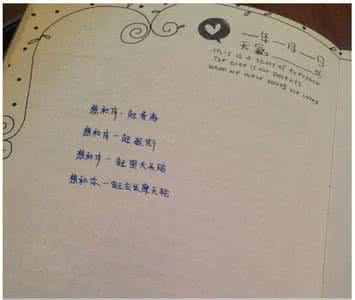 年 月 日
天氣
This is a story of everyone
The tree is our parents
When we were young we loved
想和你一起看海
想和你一起逛街
想和你一起照大头贴
想和你一起去坐摩天轮